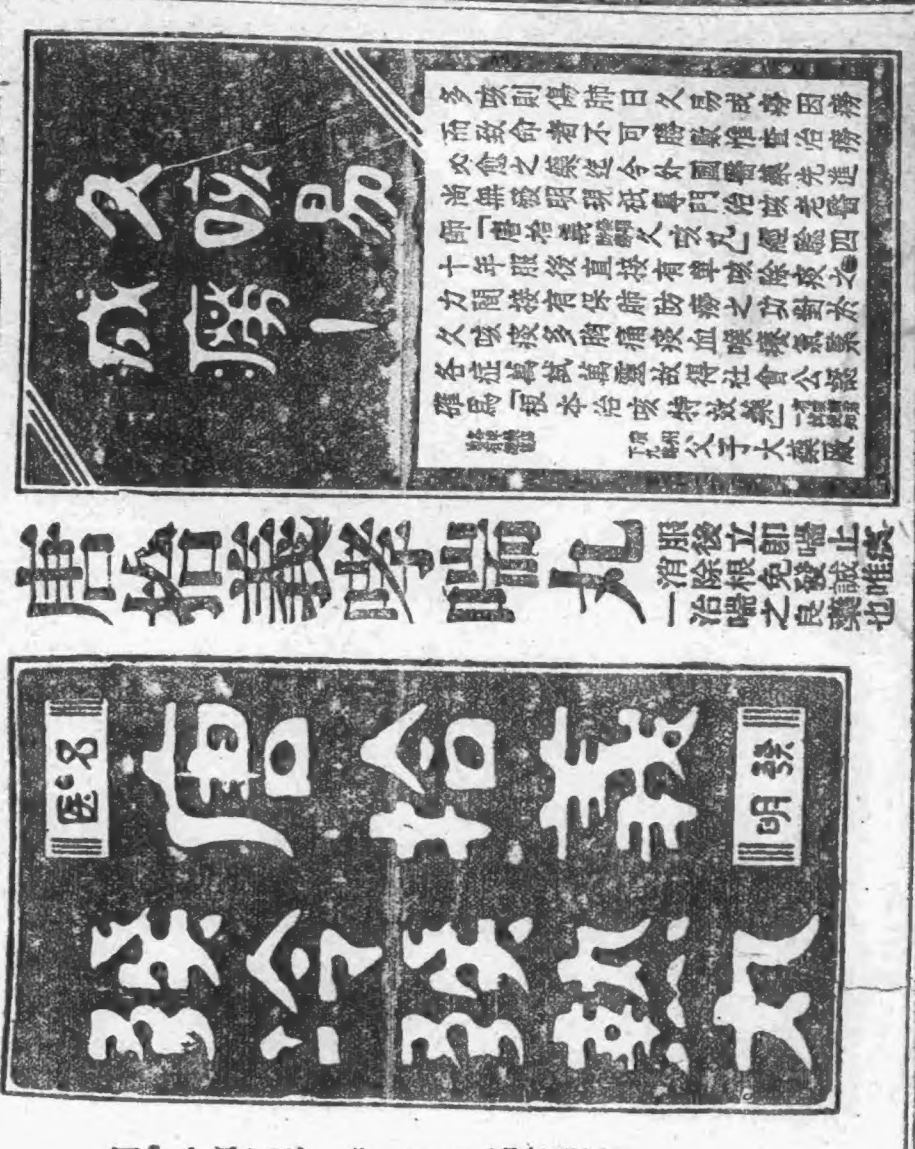 久咳易
成癆！
多咳則傷肺日久易成癆因癆
而致命者不可勝數惟直治癆
必愈之藥迄今外國醫藥先進
尚無發明現祇專門治咳老醫
師「唐拾義久咳丸」經臨四
十年服後直接有單咳除痰之
力間接有保肺防癆之功對於
久咳痰多胸痛痰血喉癢氣緊
各症萬試萬靈故得社會公認
確爲「根本治咳特效藥」
父子大藥廠
唐拾義哮喘丸
服後立即喘止痰
消除根免發誠唯
一治喘之良藥也
名医
唐拾義
發明
發冷發熱丸